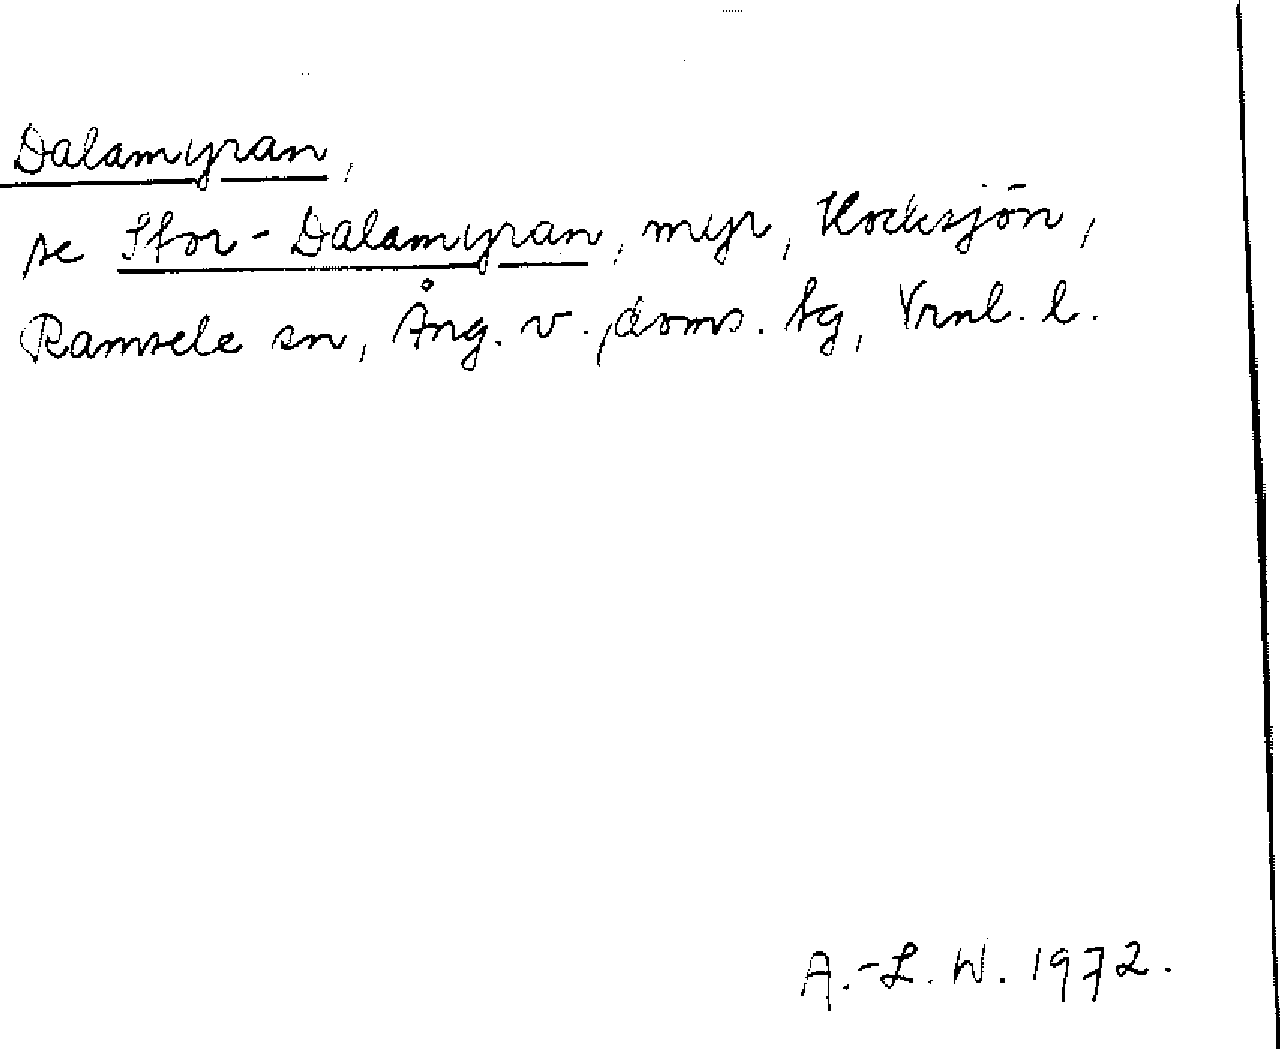 Dalamyran,
se Stor-Dalamyran, myr, Hocksjön,
Ramsele sn, Ång. v. doms. tg, Vrnl. l.
A.-L. W. 1972.